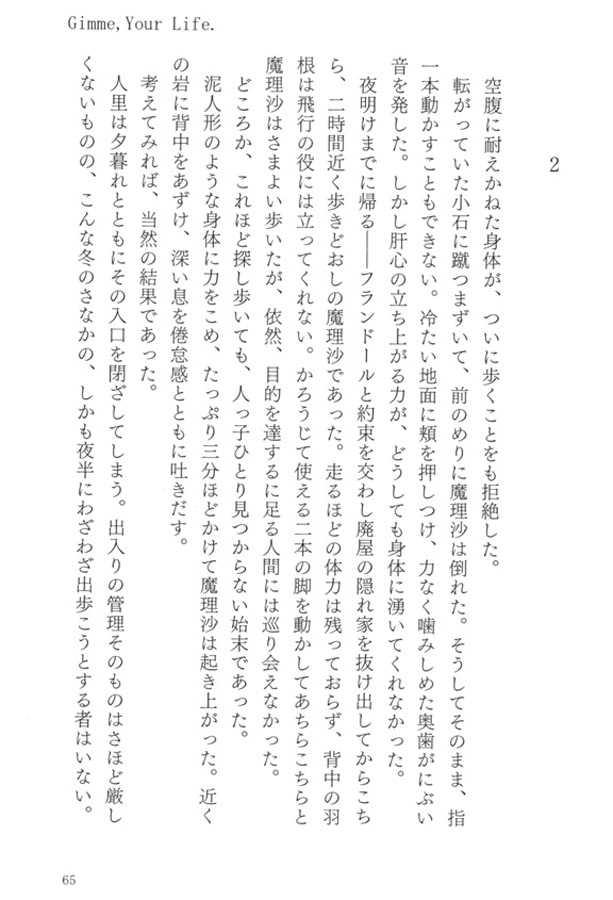 Gimme,Your Life.
2
空腹に耐えかねた身体が、ついに歩くことをも拒絶した。
転がっていた小石に蹴つまずいて、前のめりに魔理沙は倒れた。そうしてそのまま、指
一本動かすこともできない。冷たい地面に頬を押しつけ、力なく噛みしめた奥歯がにぶい
音を発した。しかし肝心の立ち上がる力が、どうしても身体に湧いてくれなかった。
夜明けまでに帰る――フランドールと約束を交わし廃屋の隠れ家を抜け出してからこち
ら、二時間近く歩きどおしの魔理沙であった。走るほどの体力は残っておらず、背中の羽
根は飛行の役には立ってくれない。かろうじて使える二本の脚を動かしてあちらこちらと
魔理沙はさまよい歩いたが、依然、目的を達するに足る人間には巡り会えなかった。
どころか、これほど探し歩いても、人っ子ひとり見つからない始末であった。
泥人形のような身体に力をこめ、たっぷり三分ほどかけて魔理沙は起き上がった。近く
の岩に背中をあずけ、深い息を倦怠感とともに吐きだす。
考えてみれば、当然の結果であった。
人里は夕暮れとともにその入口を閉ざしてしまう。出入りの管理そのものはさほど厳し
くないものの、こんな冬のさなかの、しかも夜半にわざわざ出歩こうとする者はいない。
65